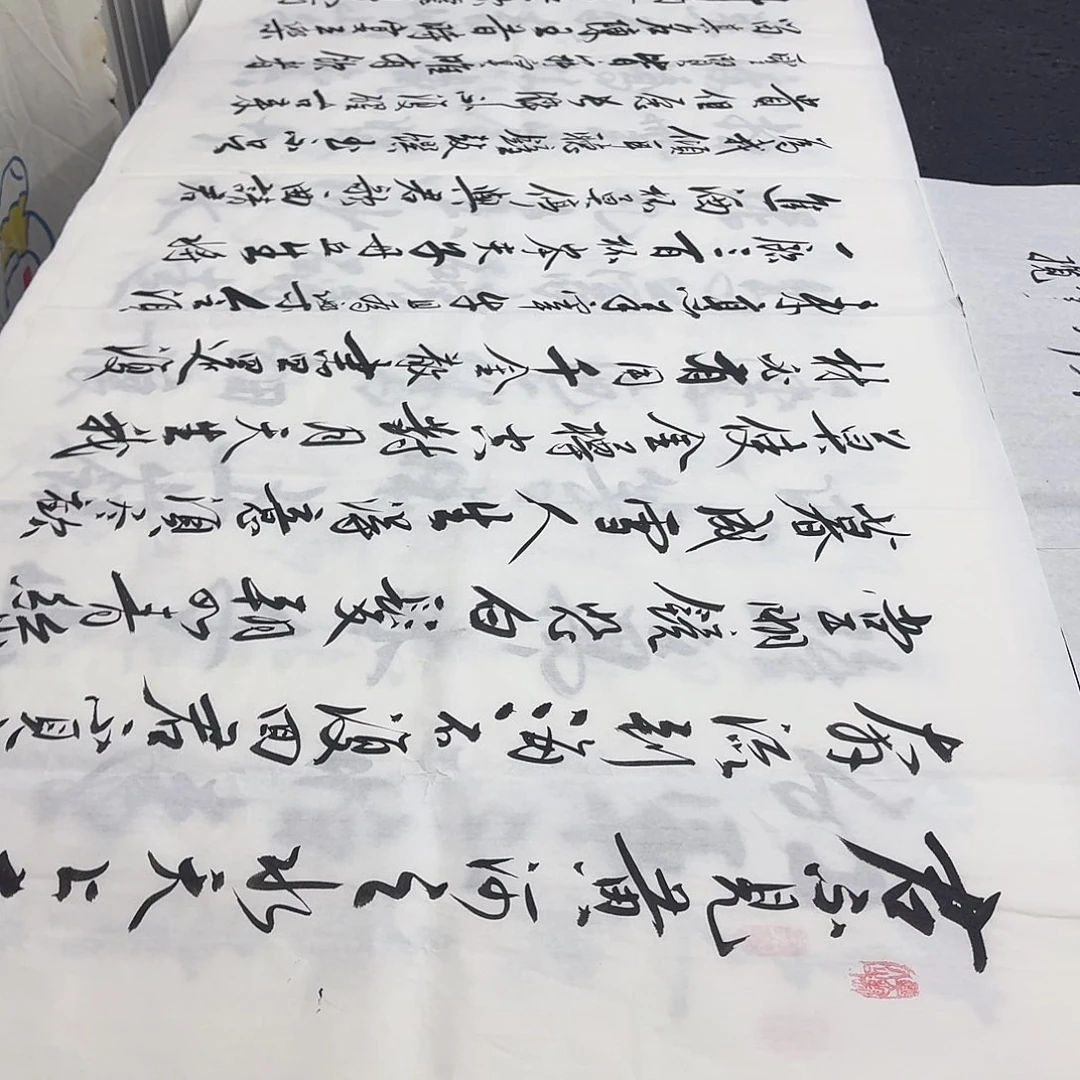 君不見黄河之水天上
奔流到海不復回君不見
堂明鏡悲白髮朝如青絲
暮成雪人生得意須盡歓
莫使金樽空對月天生我
材必有用千金散盡還復
來烹羊宰牛且為樂會須
一飲三百杯岑夫子丹丘生將
進酒杯莫停與君歌一曲請君
為我傾耳聽鐘鼓饌玉不足
貴但願長醉不復醒古來
聖賢皆寂寞惟有飲者
留其名陳王昔時宴平樂